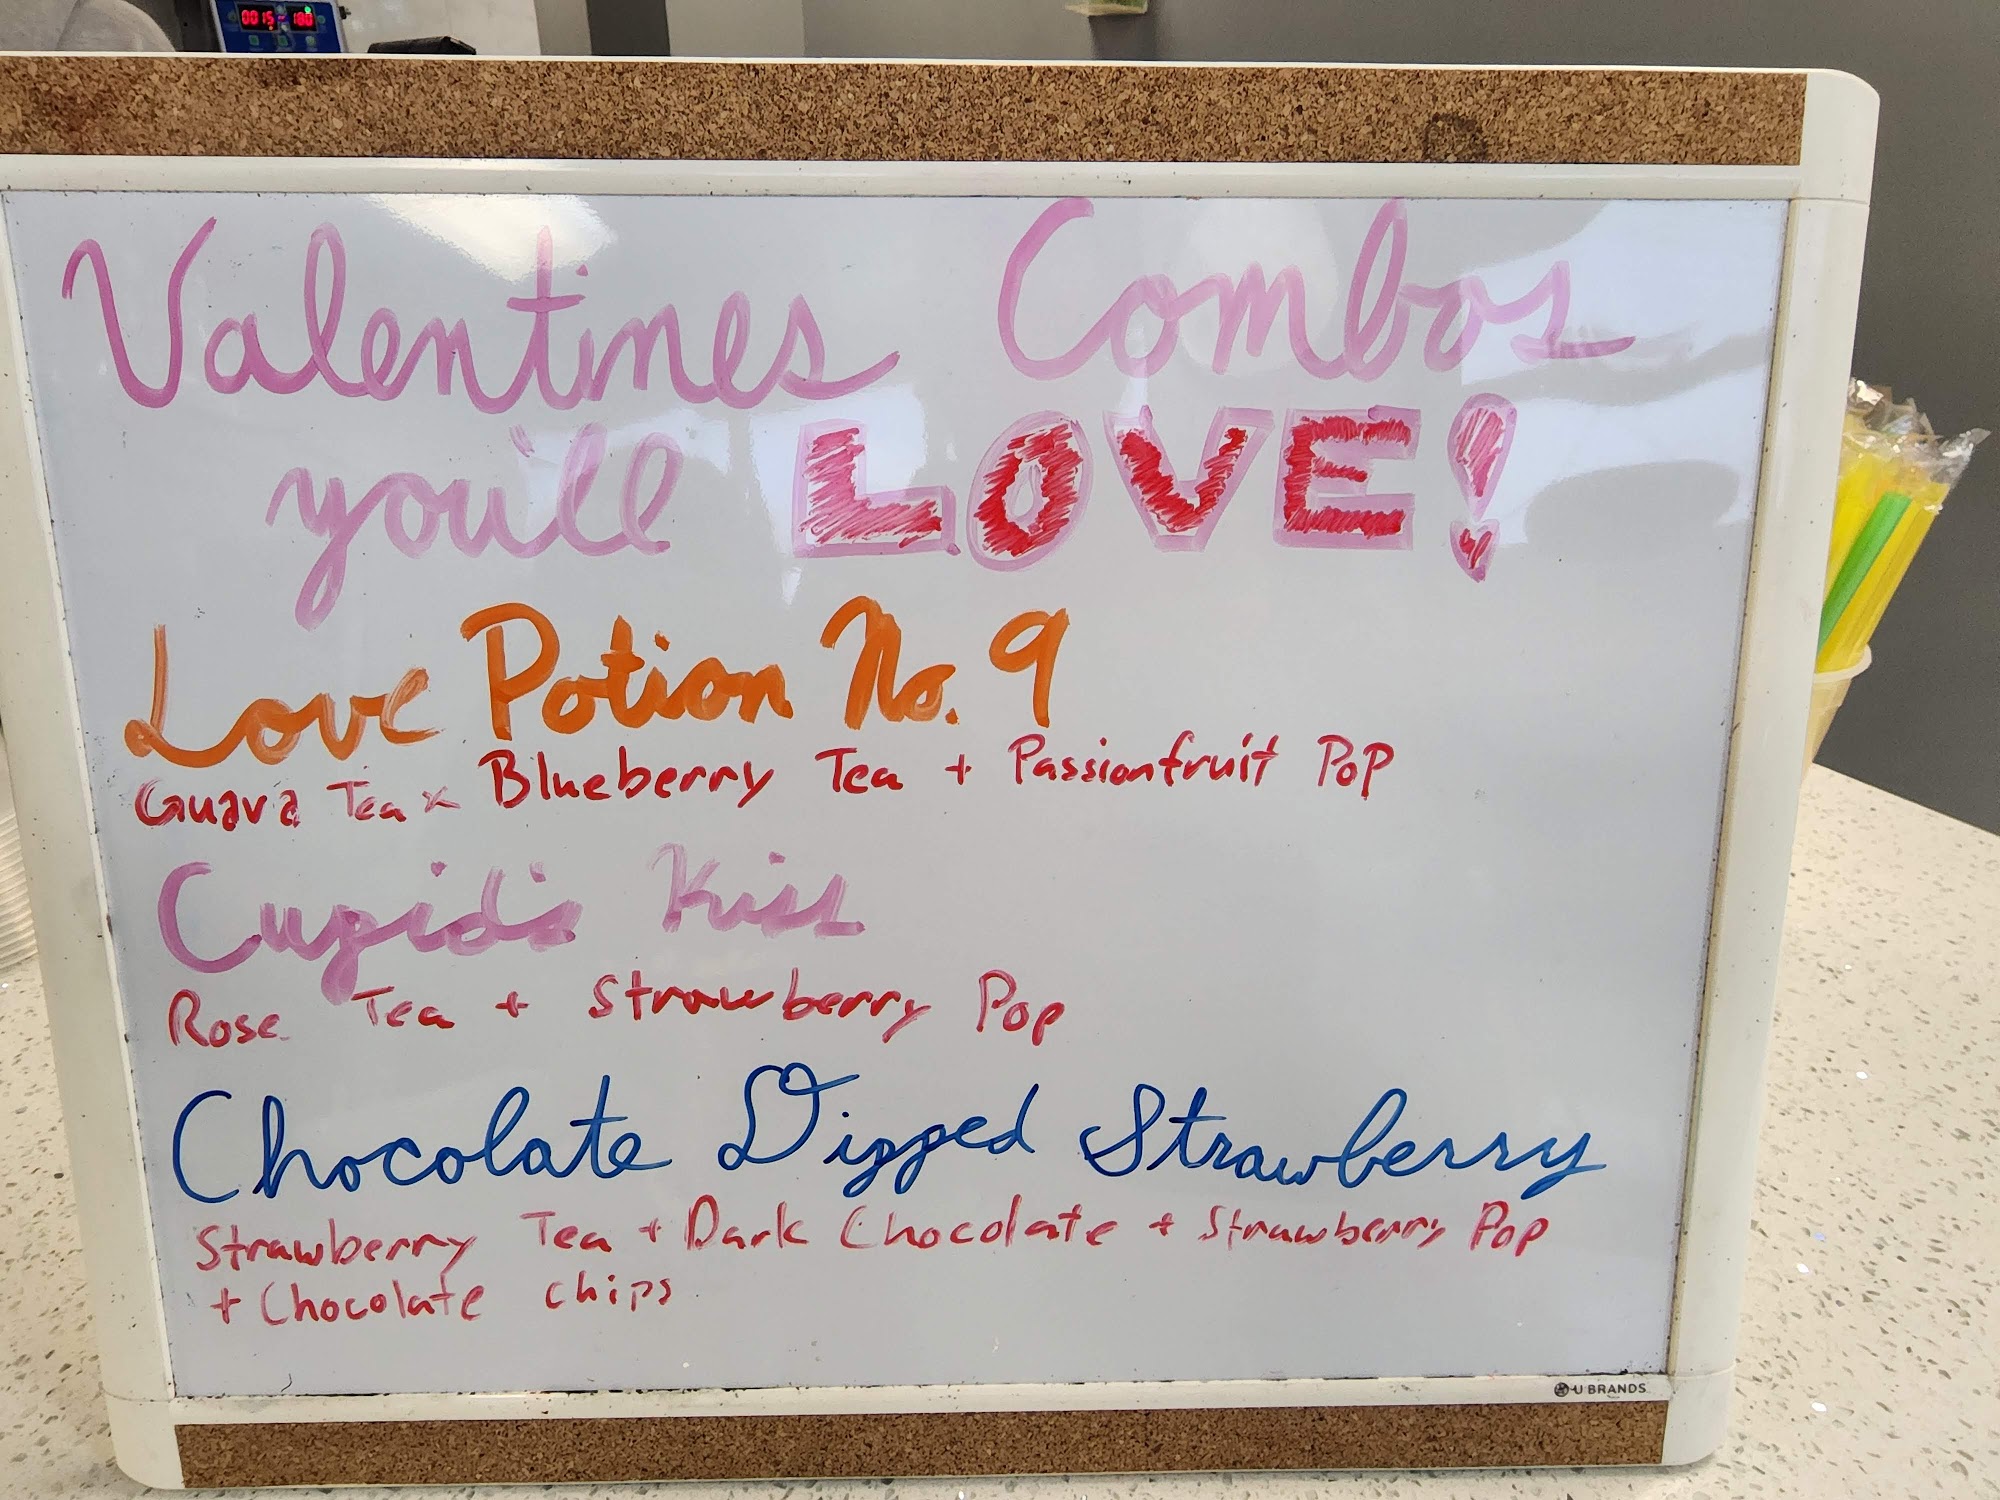 0015 180
Valentines Combos
you'll LOVE!
Love Potion No. 9
Guava Tea x Blueberry Tea + Passionfruit Pop
Cupid's Kiss
Rose Tea + Strawberry Pop
Chocolate Dipped Strawberry
Strawberry Tea + Dark Chocolate + Strawberry Pop
+ Chocolate chips
U BRANDS